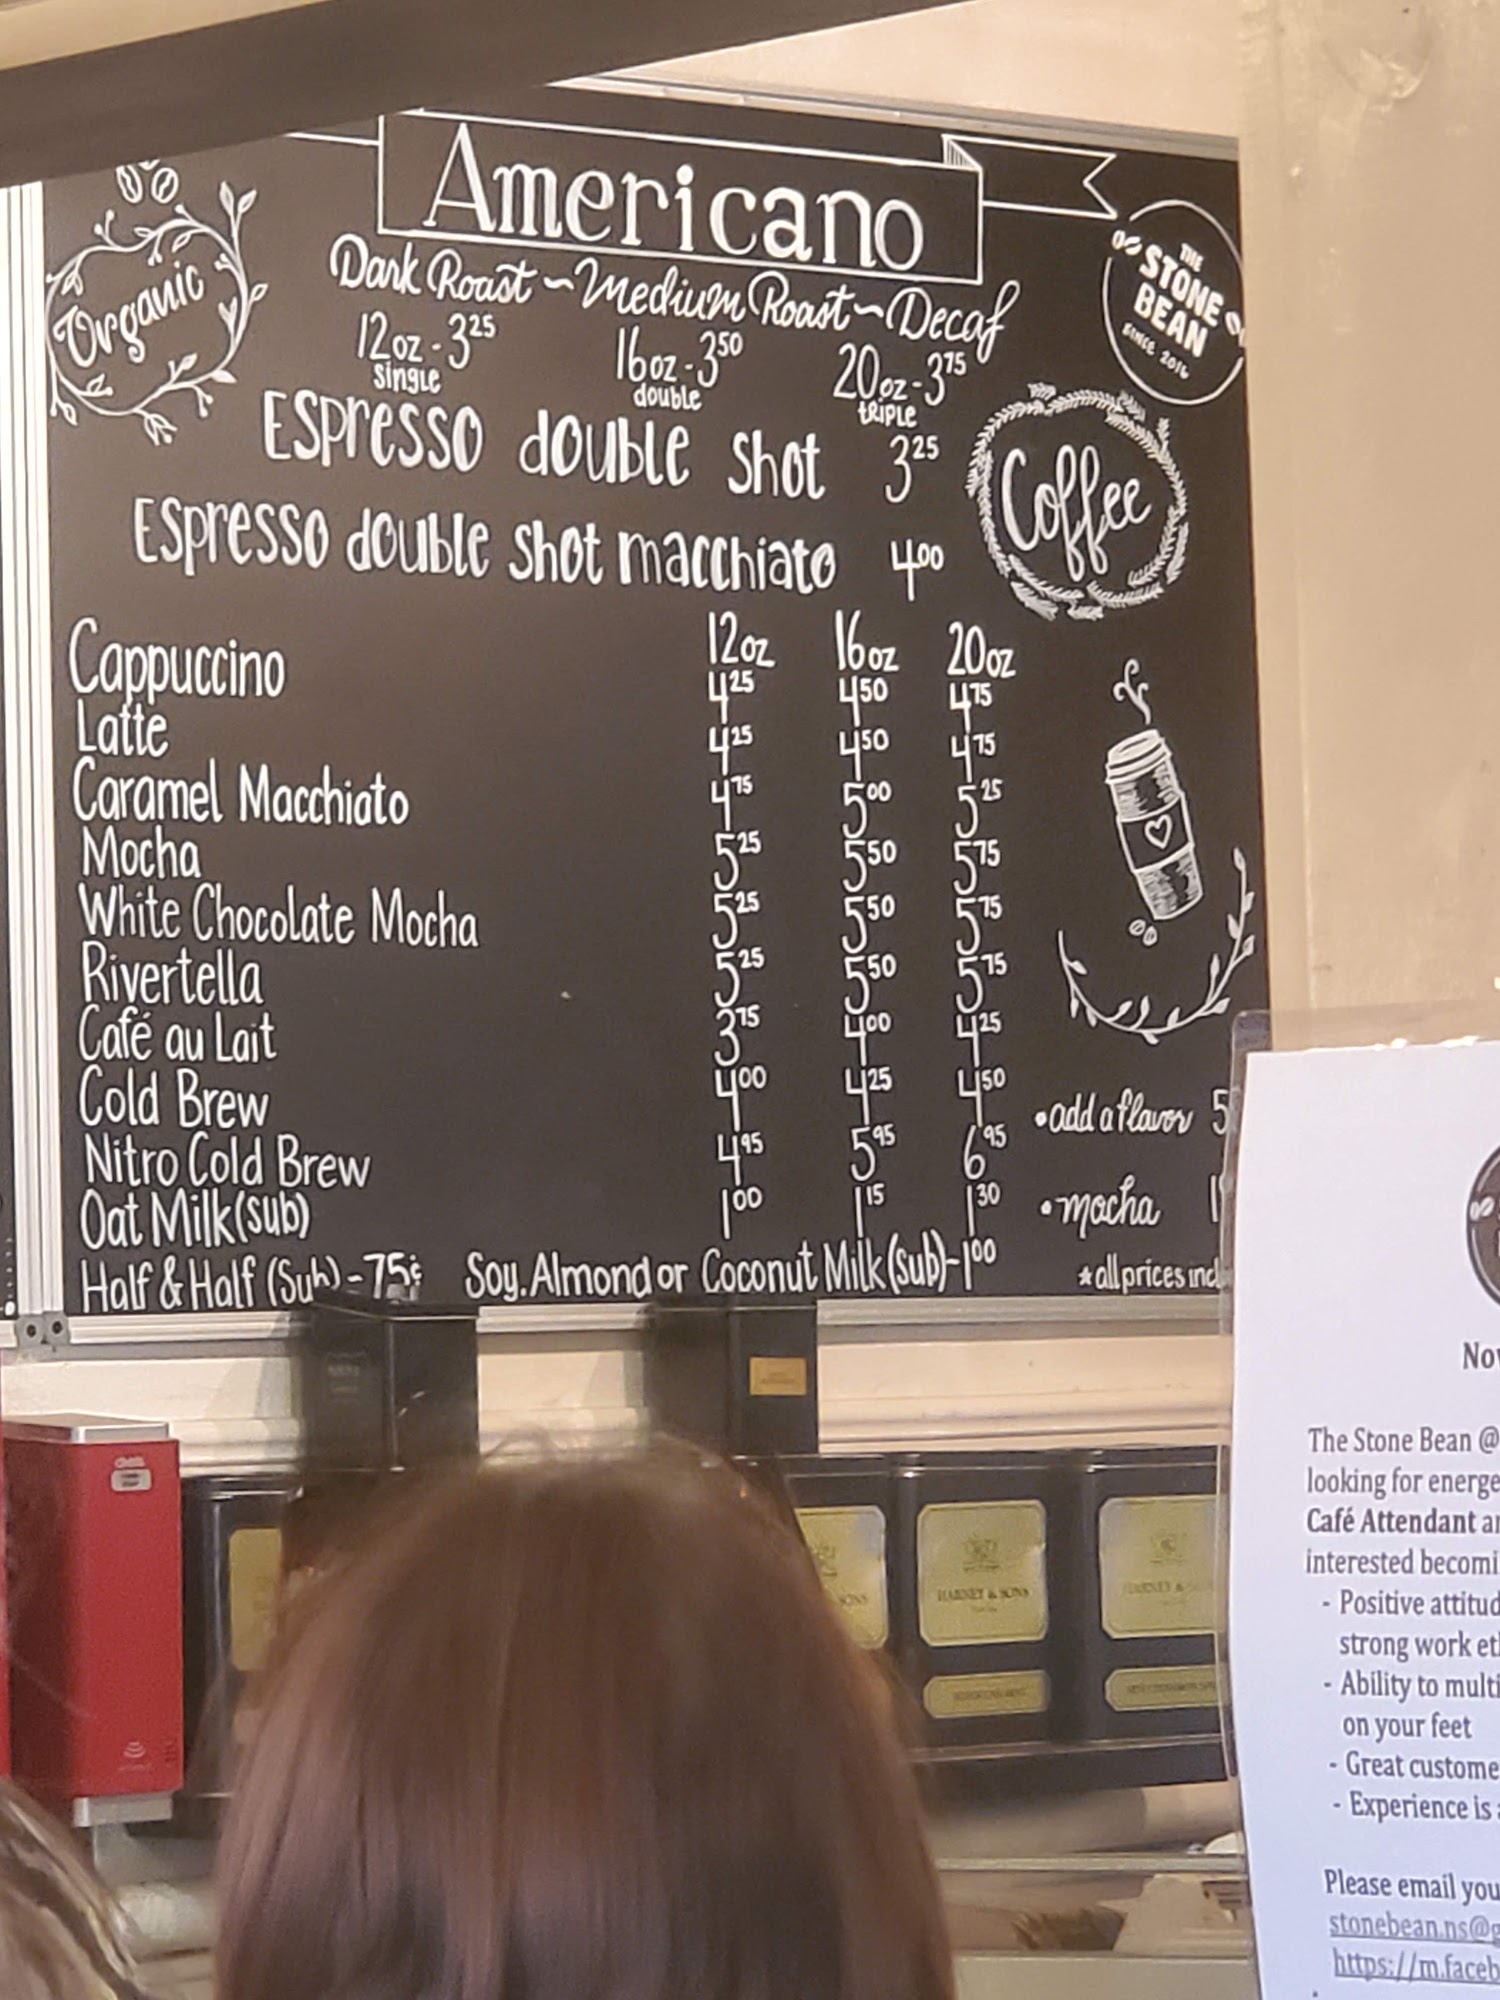 Americano
Organic
THE
STONE
BEAN
SINCE 2016
Dark Roast ~ Medium Roast ~ Decaf
12oz - 3 25 16oz - 3 50 20oz - 3 75
single double triple
Espresso double shot 3 25
Coffee
Espresso double shot macchiato 4 00
12oz 16oz 20oz
Cappuccino 4 25 4 50 4 75
Latte 4 25 4 50 4 75
Caramel Macchiato 4 75 5 00 5 25
Mocha 5 25 5 50 5 75
White Chocolate Mocha 5 25 5 50 5 75
Rivertella 5 25 5 50 5 75
Café au Lait 3 75 4 00 4 25
Cold Brew 4 00 4 25 4 50
• add a flavor 5
Nitro Cold Brew 4 95 5 95 6 95
Oat Milk (sub) 1 00 1 15 1 30
• mocha 1
Half & Half (Sub) - 75¢ Soy. Almond or Coconut Milk (sub) - 1 00
* all prices incl
HARNEY & SONS
HARNEY &
SONS
Nov
The Stone Bean @
looking for energe
Café Attendant an
interested becomi
- Positive attitud
strong work eth
- Ability to multi
on your feet
- Great custome
- Experience is a
Please email you
stonebean.ns@g
https://m.faceb